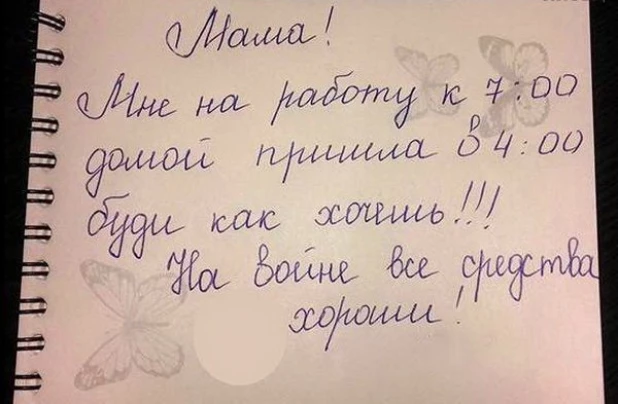 Мама!
Мне на работу к 7:00
домой пришла в 4:00
буди как хочешь!!!
На войне все средства
хороши!